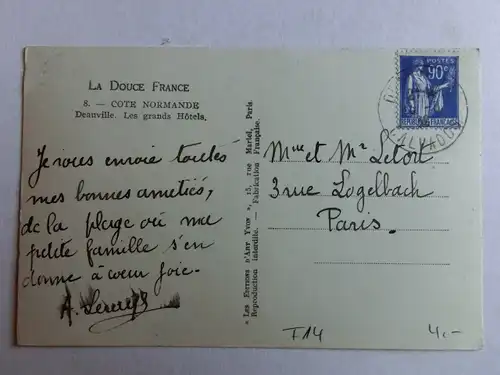 LA DOUCE FRANCE
8. — COTE NORMANDE
Deauville. Les grands Hôtels.
Je vous envoie toutes
mes bonnes amitiés,
de la plage où ma
petite famille s'en
donne à cœur joie.
A.
« LES EDITIONS D'ART YVON », 15, rue Martel, Paris.
Reproduction interdite. — Fabrication Française.
POSTES
90c
REPUBLIQUE FRANÇAISE
CALVADOS
Mme et Mr Letort
3 rue Logelbach
Paris.
T14
4.-